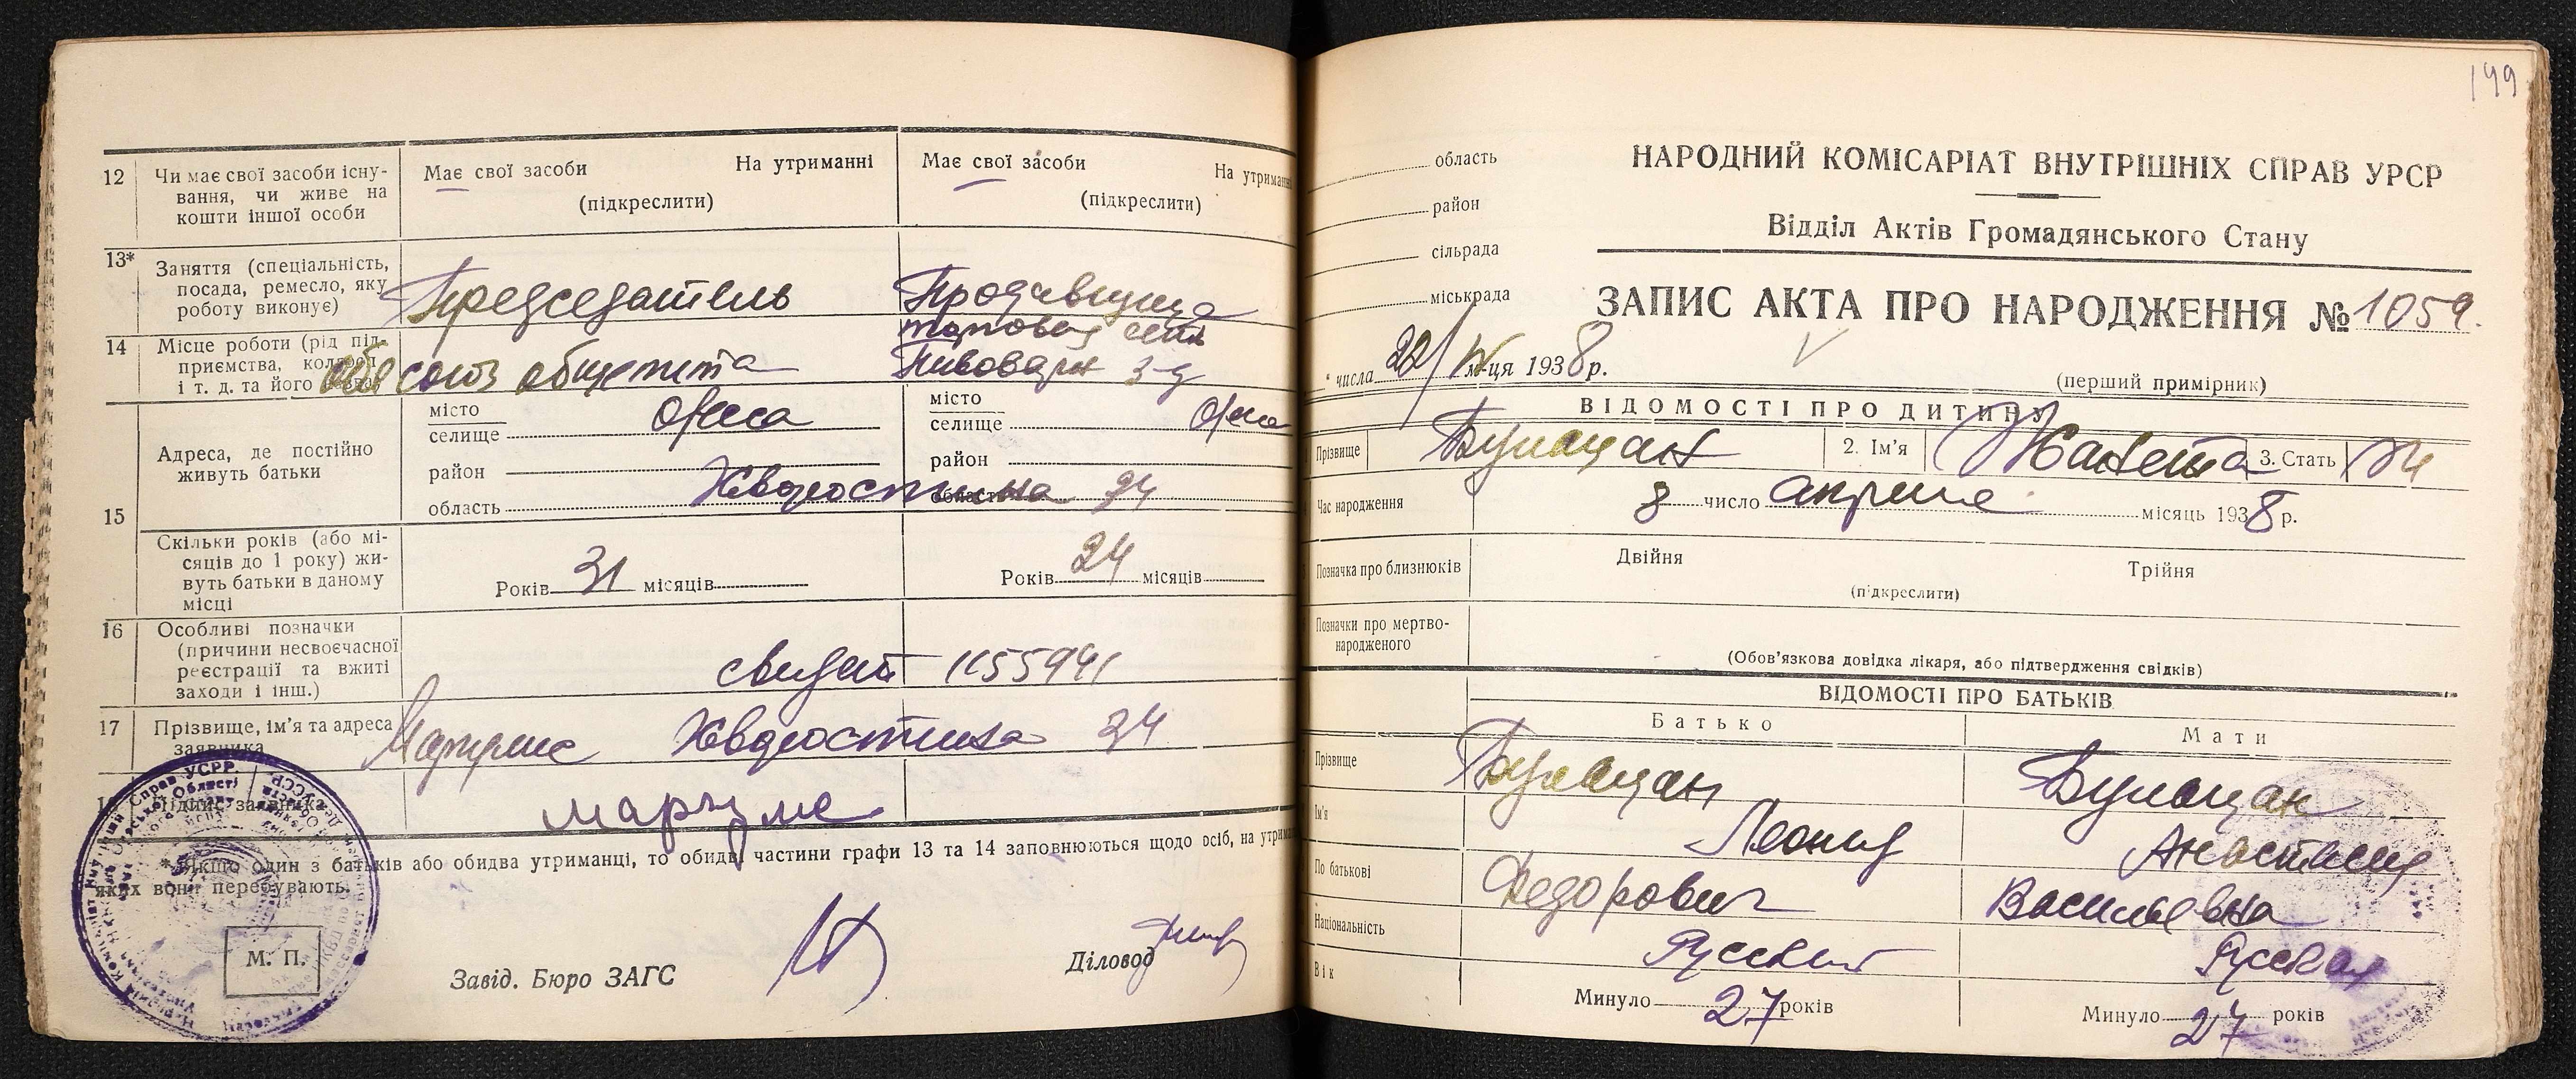 12
Чи має свої засоби існу-
вання, чи живе на
кошти іншої особи
Має свої засоби На утриманні
(підкреслити)
Має свої засоби На утриманні
(підкреслити)
13*
Заняття (спеціальність,
посада, ремесло, яку
роботу виконує)
Председатель
Продавщица
14
Місце роботи (рід під-
приємства, колгосп
і т. д. та його назва)
союз общепита
сеть
Пивоварн з-д
15
Адреса, де постійно
живуть батьки
місто
селище Одесса
район
область
місто
селище Одесса
район
область
Хворостина 24
Скільки років (або мі-
сяців до 1 року) жи-
вуть батьки в даному
місці
Років 31 місяців
Років 24 місяців
16
Особливі позначки
(причини несвоєчасної
реєстрації та вжиті
заходи і інш.)
свидет 1155941
17
Прізвище, ім’я та адреса
заявника
Хворостина 24
18
Підпис заявника
* Якщо один з батьків або обидва утриманці, то обидві частини графи 13 та 14 заповнюються щодо осіб, на утриманні
яких вони перебувають.
М. П.
Завід. Бюро ЗАГС
Діловод
199
область
район
сільрада
міськрада
НАРОДНИЙ КОМІСАРІАТ ВНУТРІШНІХ СПРАВ УРСР
Відділ Актів Громадянського Стану
ЗАПИС АКТА ПРО НАРОДЖЕННЯ № 1059.
числа 22/IV м-ця 1938 р.
(перший примірник)
ВІДОМОСТІ ПРО ДИТИНУ
Прізвище Булацан 2. Ім’я Жанета 3. Стать Ж
Час народження 8 число апреля місяць 1938 р.
Позначка про близнюків Двійня Трійня
(підкреслити)
Позначки про мертво-
народженого
(Обов’язкова довідка лікаря, або підтвердження свідків)
ВІДОМОСТІ ПРО БАТЬКІВ
Батько Мати
Прізвище Булацан Булацан
Ім’я Леонид Анастасия
По батькові Федорович Васильевна
Національність Русский Русская
Вік Минуло 27 років Минуло 27 років